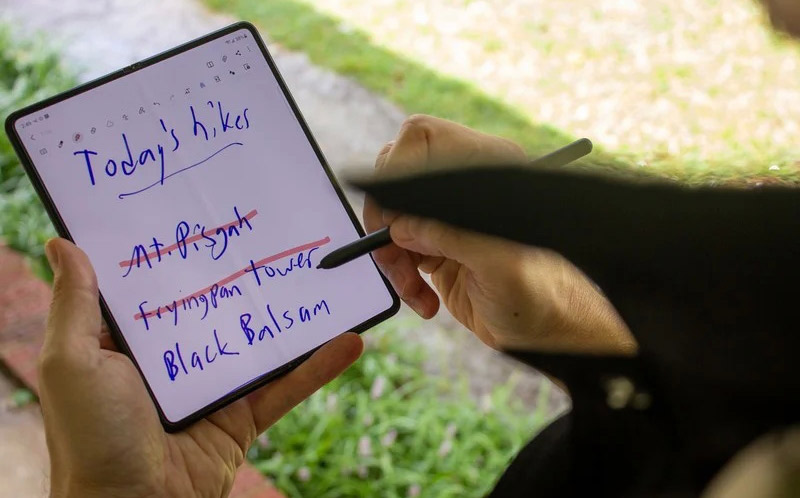 Today's hikes
Mt. Pisgah
Fryingpan tower
Black Balsam